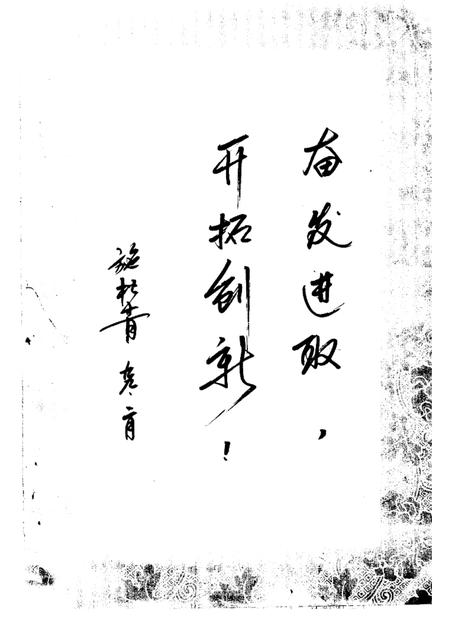 奋发进取，
开拓创新！
施松青